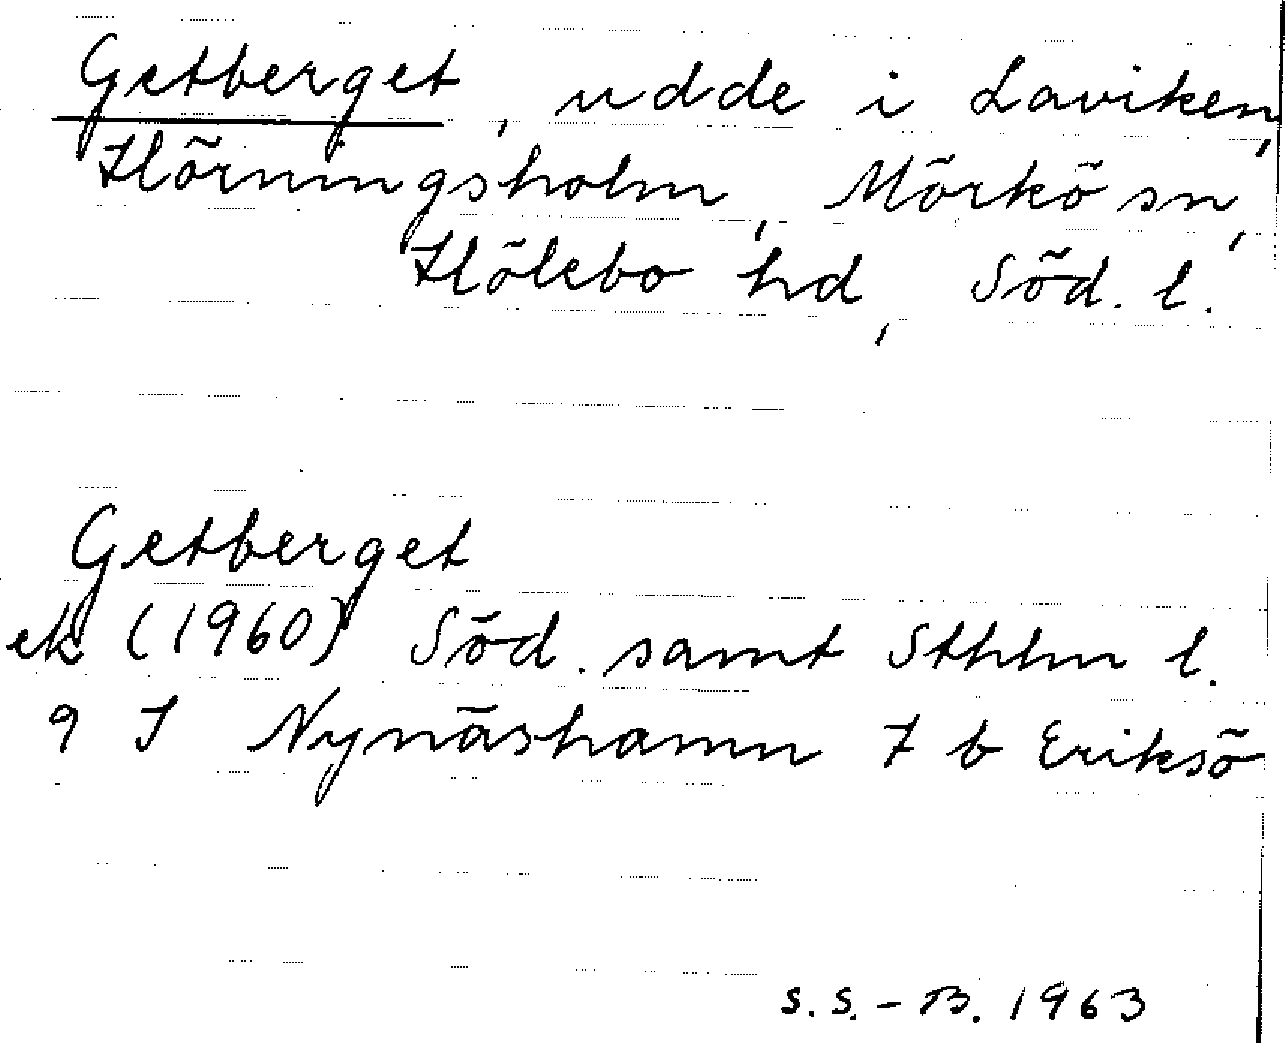 Getberget, udde i Laviken,
Hörningsholm, Mörkö sn,
Hölebo hd, Söd. l.
Getberget
ek (1960) Söd. samt Sthlm l.
9 I Nynäshamn 7 b Eriksö
S.S.-B. 1963